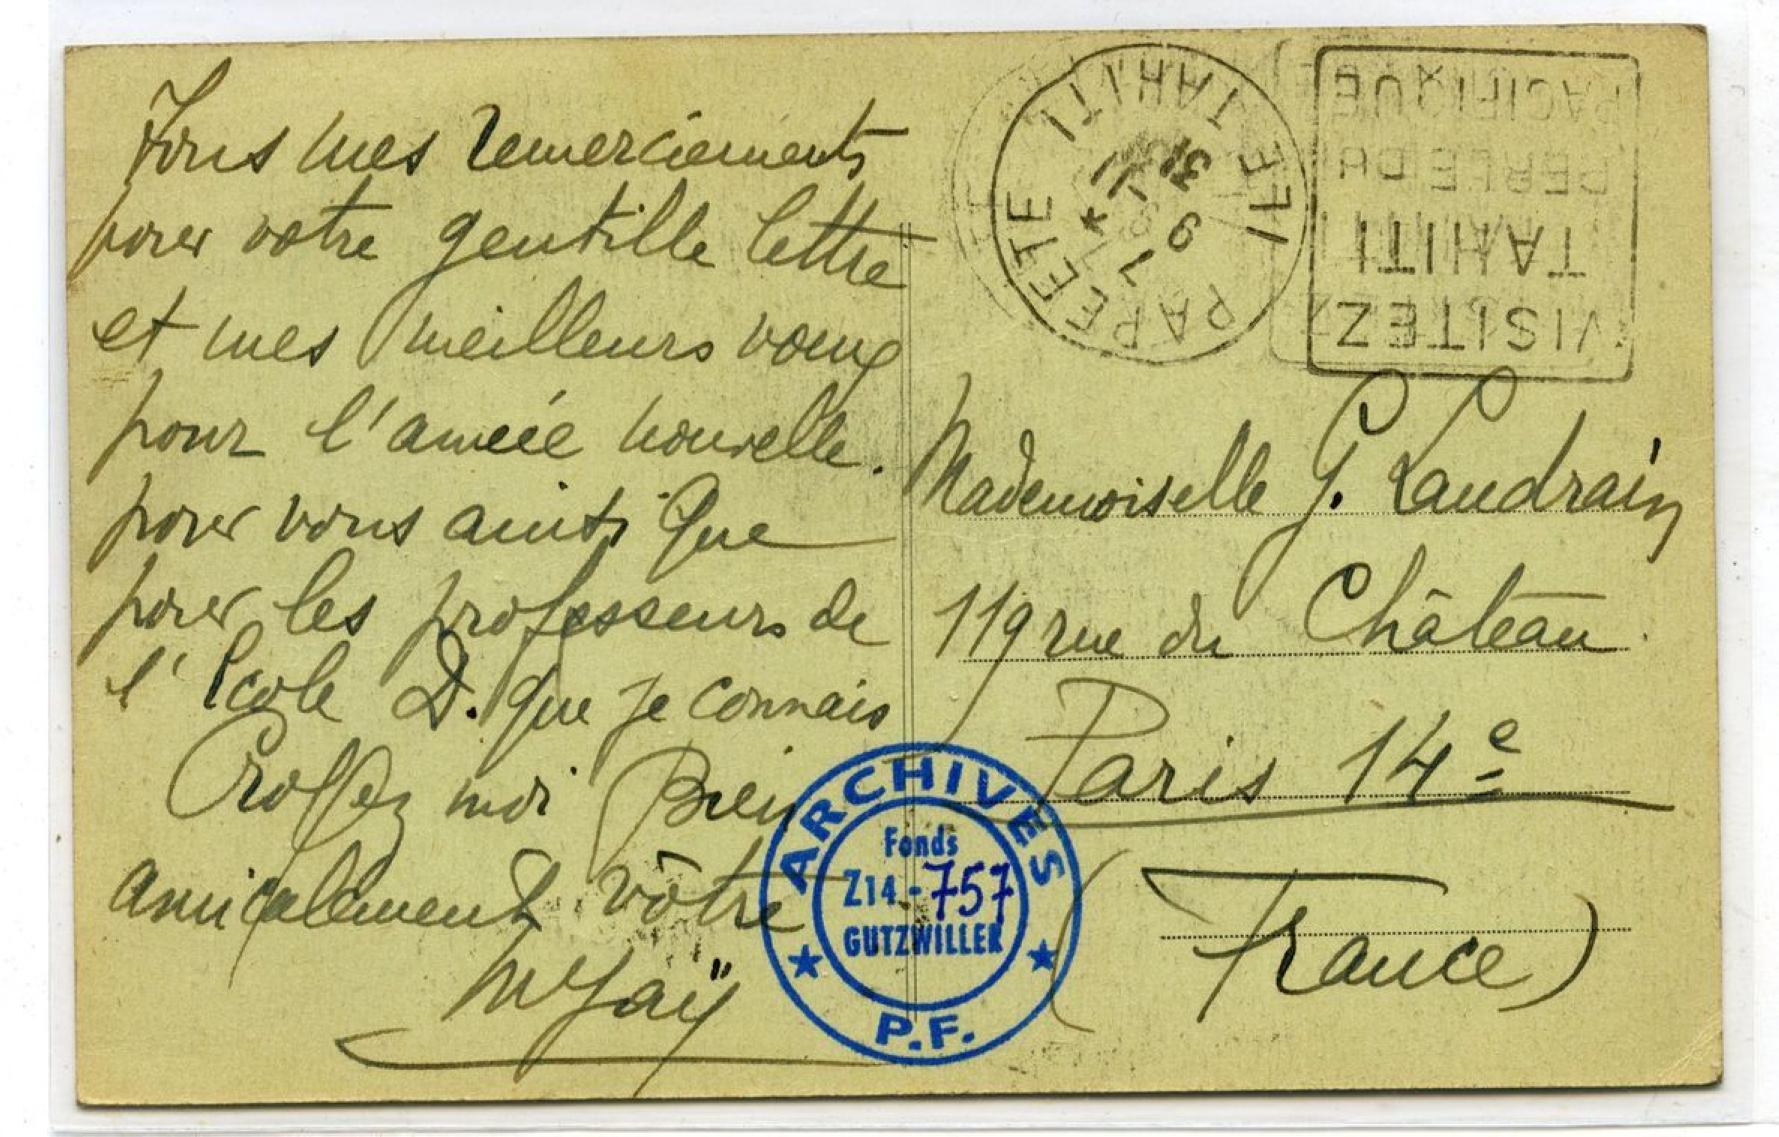 Tous mes remerciements
pour votre gentille lettre
et mes meilleurs voeux
pour l'année nouvelle.
pour vous ainsi que
pour les professeurs de
l'Ecole D. que je connais
Croyez moi Bien
amicalement vôtre
PAPEETE TAHITI
7
9 - 11
31
VISITEZ
TAHITI
PERLE DU
PACIFIQUE
Mademoiselle G. Landrain
119 rue du Château
Paris 14e
(France)
ARCHIVES
Fonds
Z14-757
GUTZWILLER
P.F.